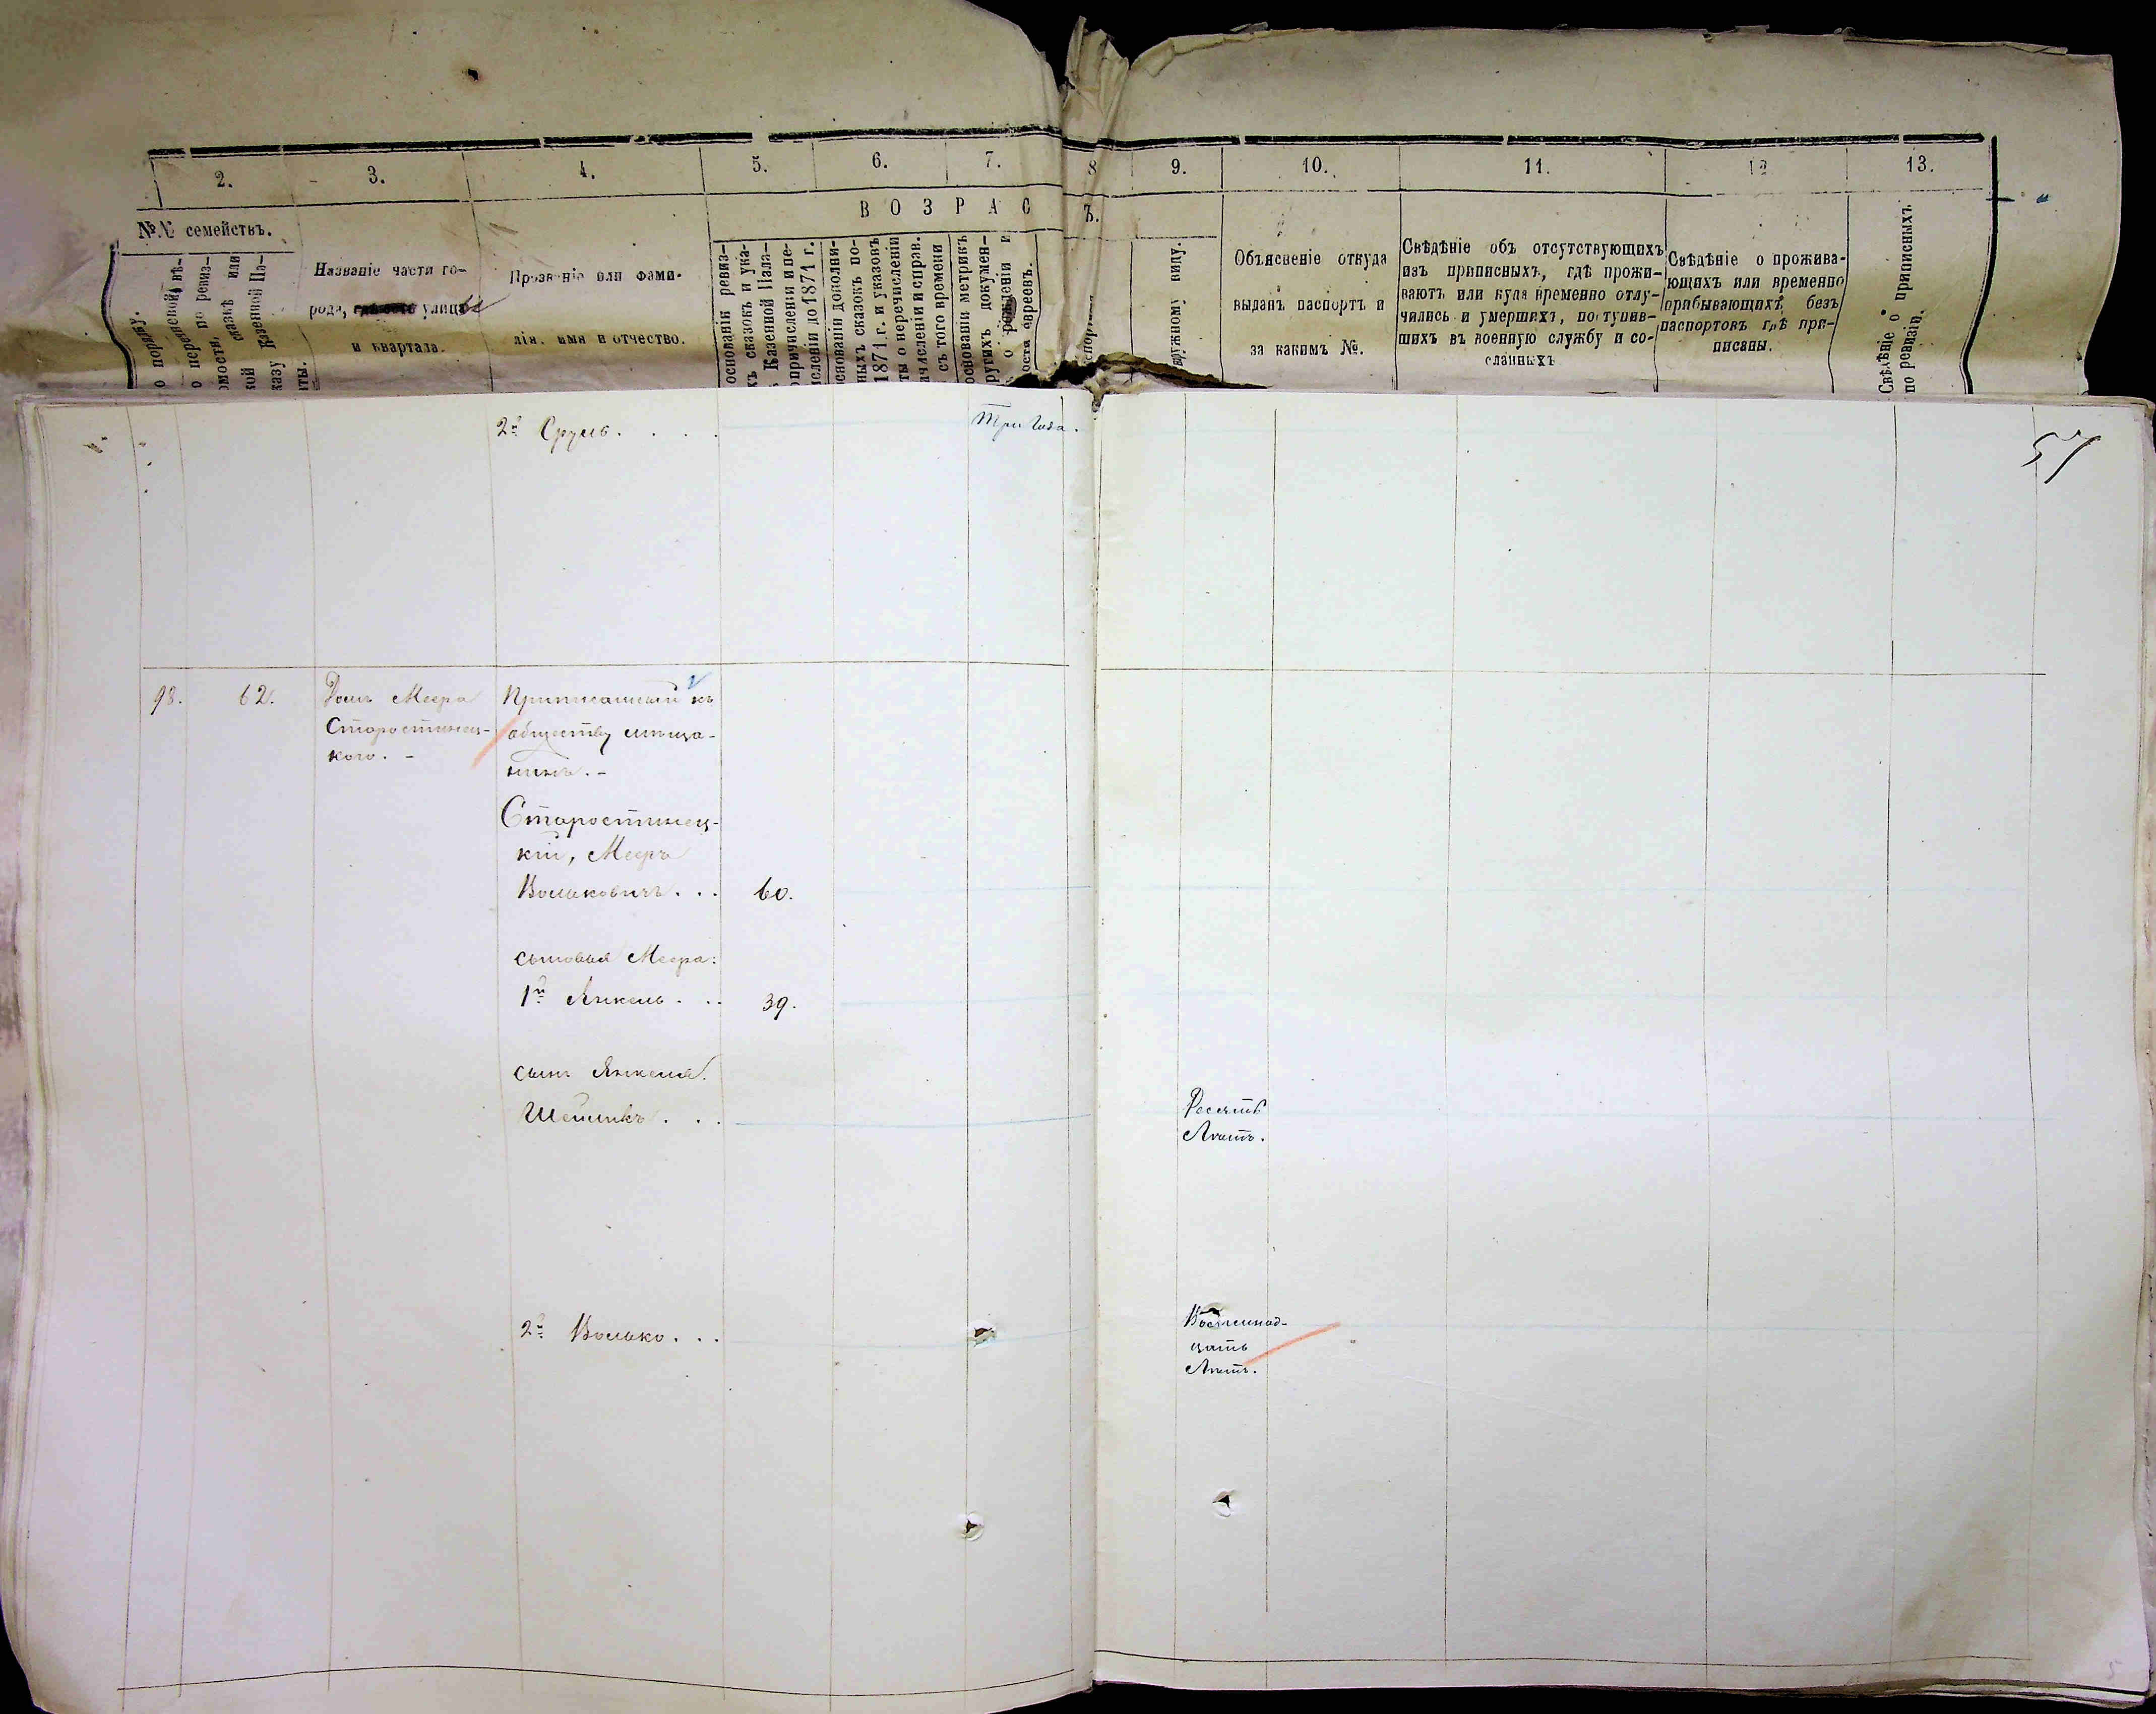 2. 3. 4. 5. 6. 7. 8 9. 10. 11. 12 13.
№№ семействъ.
о порядку.
о перечневой вѣ-
омости.
о переп. по ревиз-
ской сказкѣ или
казу Казенной Па-
ты.
Названіе части го-
рода, улицы
и квартала.
Прозваніе или фами-
лія, имя и отчество.
ВОЗРАС
Ъ.
основаніи ревиз-
хъ сказокъ и ука-
ъ Казенной Пала-
о причисленіи и пе-
исленіи до 1871 г.
снованіи дополни-
ныхъ сказокъ по-
1871 г. и указовъ
ты о перечисленіи
ичисленіи и справ.
съ того времени
основаніи метрикъ
ругихъ докумен-
ъ о рожденіи и
ости евреевъ.
аспорт
аружному виду.
Объясненіе откуда
выданъ паспортъ и
за какимъ №.
Свѣдѣніе объ отсутствующихъ
изъ приписныхъ, гдѣ прожи-
ваютъ или куда временно отлу-
чились и умершихъ, поступив-
шихъ въ военную службу и со-
сланныхъ
Свѣдѣніе о прожива-
ющихъ или временно
прибывающихъ безъ
паспортовъ гдѣ при-
писаны.
Свѣдѣніе о приписныхъ
по ревизіи.
2й Сруль. . . .
Три года.
57
98. 62.
Домъ Меера
Старостинец-
кого. -
Приписанный къ
обществу мѣща-
нинъ. -
Старостинец-
кій, Мееръ
Волковичъ . . . 60.
сыновья Меера:
1й Янкель . . . 39.
сынъ Янкеля.
Шеиликъ . . .
Десять
Лѣтъ.
2й Волько . . .
Восемнад-
цать
Лѣтъ.